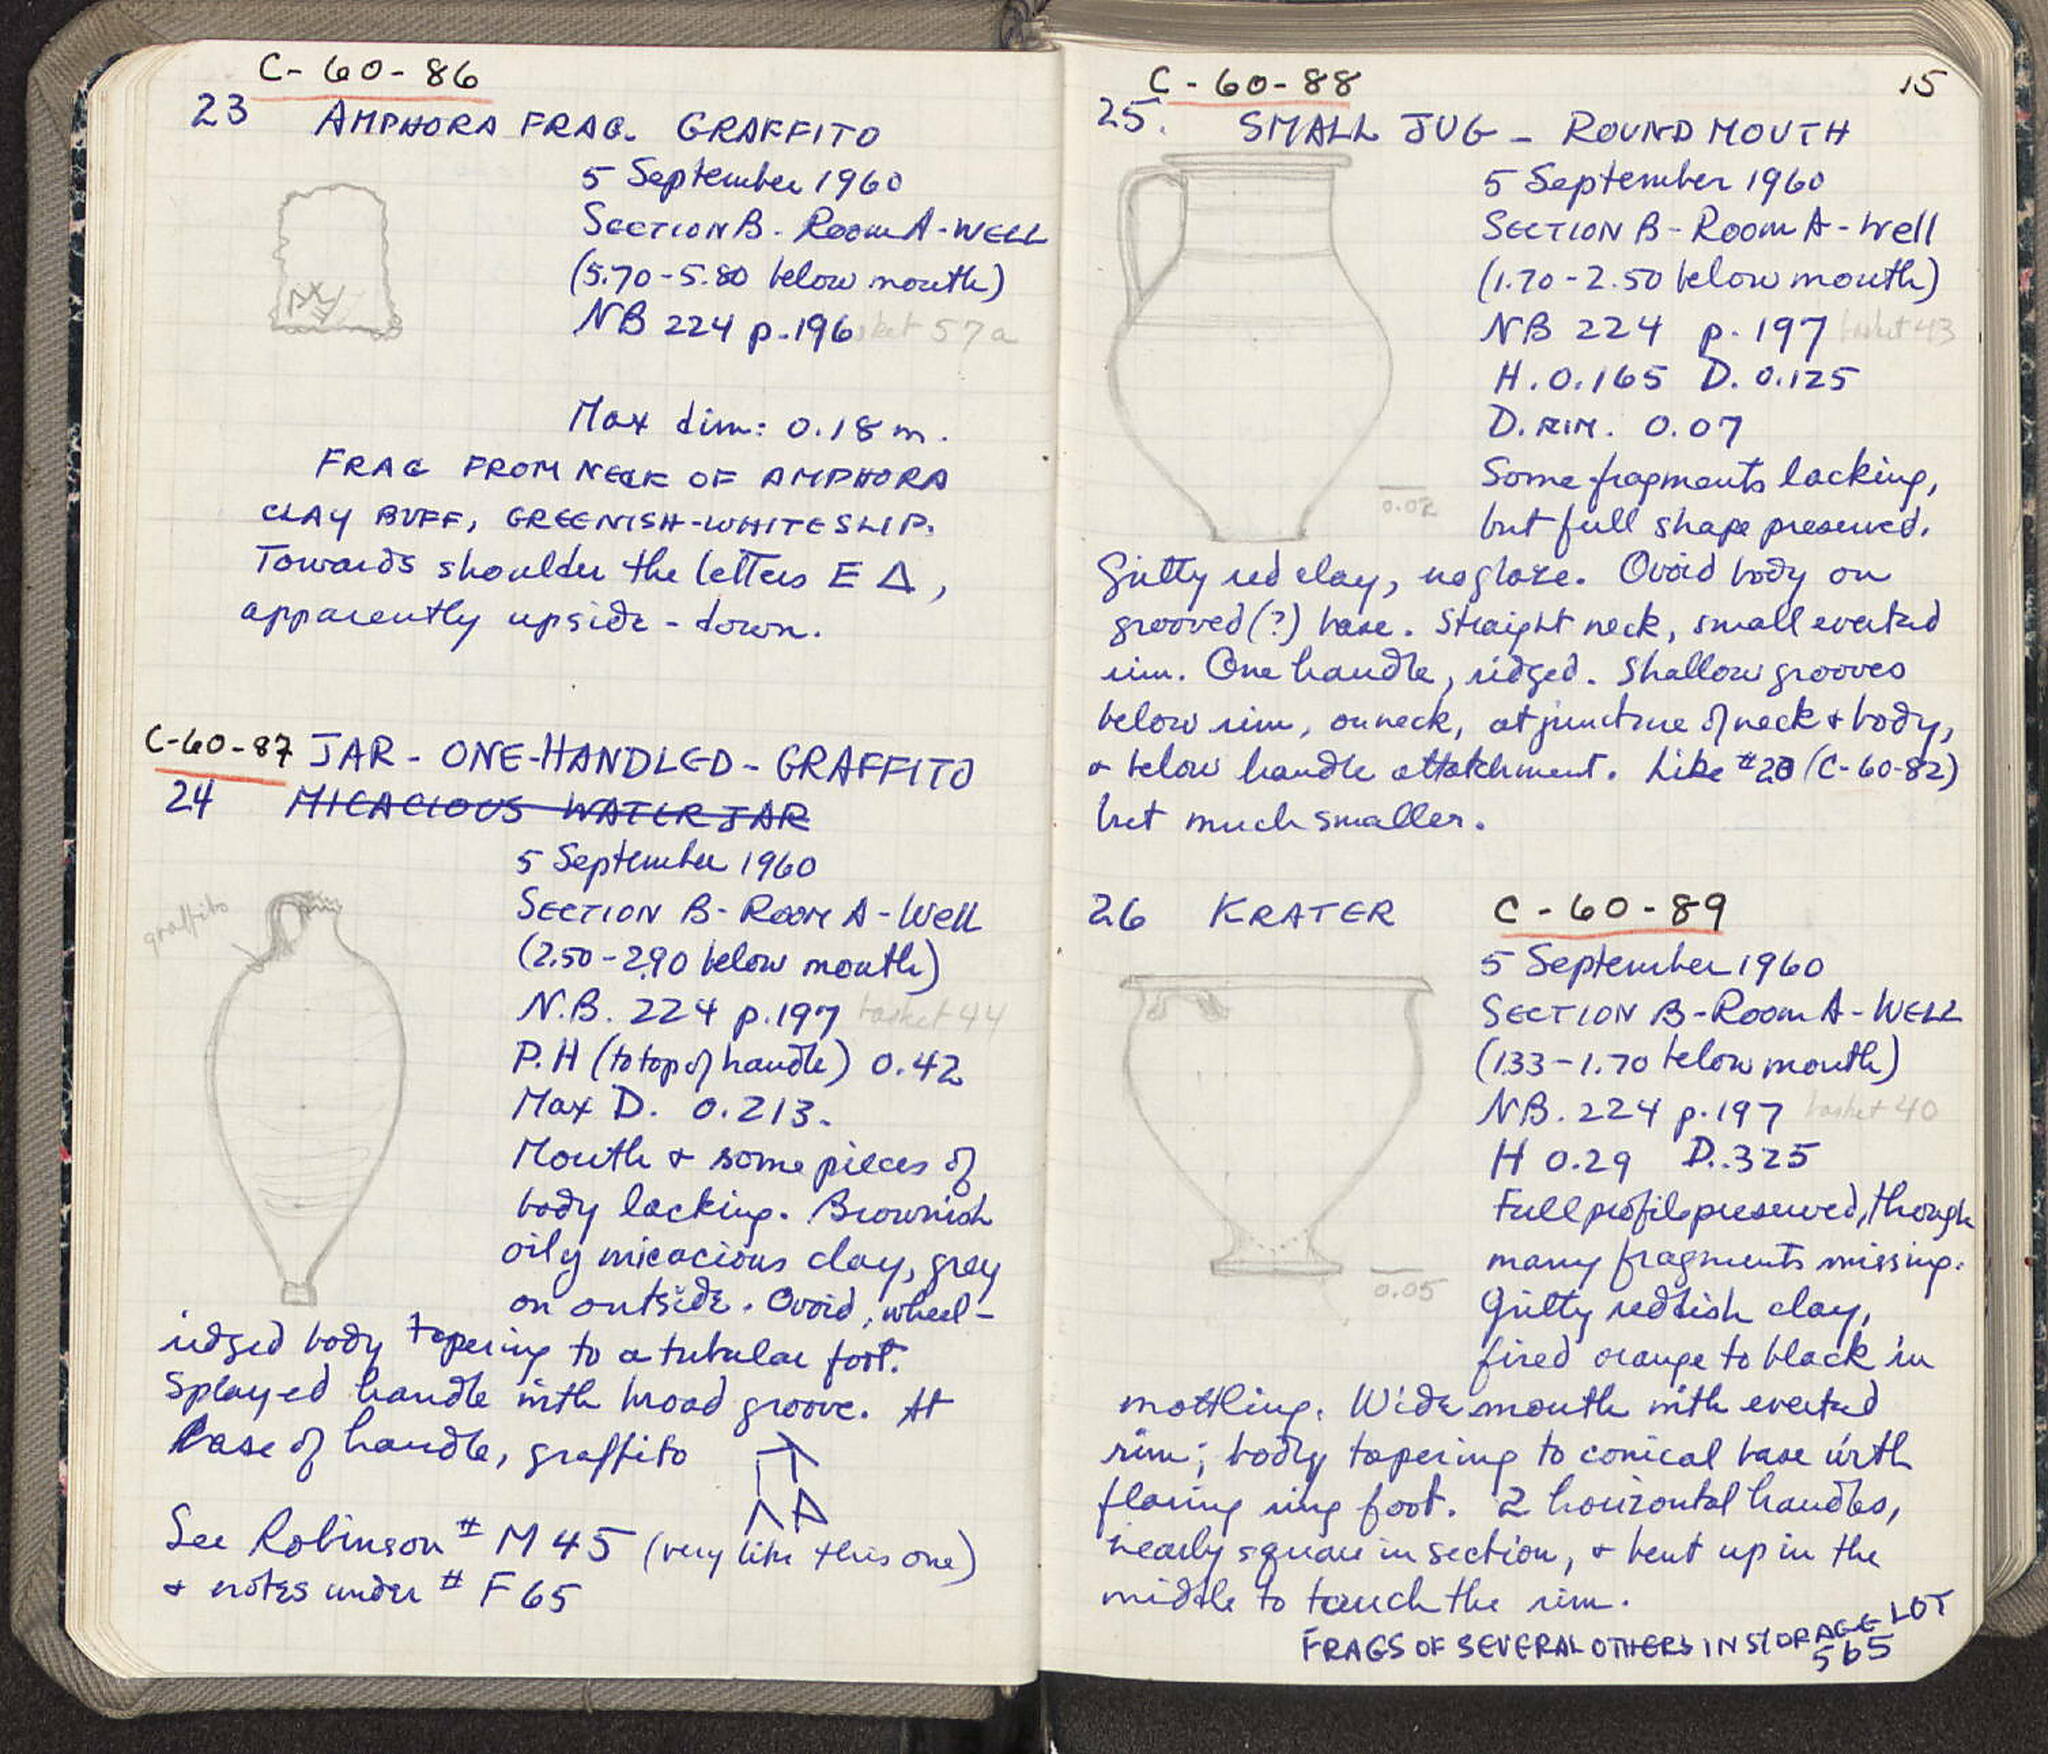 C-60-86
23 AMPHORA FRAG. GRAFFITO
5 September 1960
SECTION B - Room A - WELL
(5.70-5.80 below mouth)
NB 224 p.196 basket 57a
Max dim: 0.18 m.
FRAG FROM NECK OF AMPHORA
CLAY BUFF, GREENISH-WHITE SLIP.
Towards shoulder the letters E Δ,
apparently upside-down.
C-60-87 JAR - ONE-HANDLED - GRAFFITO
24 MICACIOUS WATER JAR
graffito
5 September 1960
SECTION B - Room A - Well
(2.50-2.90 below mouth)
N.B. 224 p.197 basket 44
P.H (to top of handle) 0.42
Max D. 0.213.
Mouth & some pieces of
body lacking. Brownish
oily micacious clay, grey
on outside. Ovoid, wheel-
ridged body tapering to a tubular foot.
Splayed handle with broad groove. At
base of handle, graffito
See Robinson # M 45 (very like this one)
& notes under # F 65
15
C-60-88
25. SMALL JUG - ROUND MOUTH
5 September 1960
SECTION B - Room A - Well
(1.70-2.50 below mouth)
NB 224 p. 197 basket 43
H. 0.165 D. 0.125
D. RIM. 0.07
Some fragments lacking,
but full shape preserved.
0.02
Gritty red clay, no glaze. Ovoid body on
grooved (?) base. Straight neck, small everted
rim. One handle, ridged. Shallow grooves
below rim, on neck, at juncture of neck & body,
& below handle attatchment. Like #20 (C-60-82)
but much smaller.
26 KRATER C-60-89
5 September 1960
SECTION B - Room A - WELL
(1.33-1.70 below mouth)
NB. 224 p.197 basket 40
H 0.29 D. .325
Full profile preserved, though
many fragments missing.
0.05
Gritty reddish clay,
fired orange to black in
mottling. Wide mouth with everted
rim; body tapering to conical base with
flaring ring foot. 2 horizontal handles,
nearly square in section, & bent up in the
middle to touch the rim.
FRAGS OF SEVERAL OTHERS IN STORAGE LOT
565